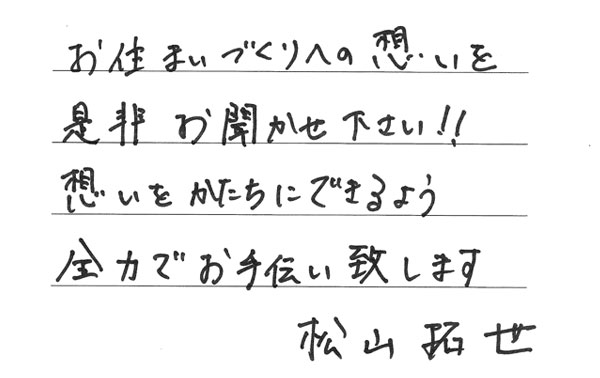 お住まいづくりへの想いを
是非お聞かせ下さい!!
想いをかたちにできるよう
全力でお手伝い致します
松山拓世